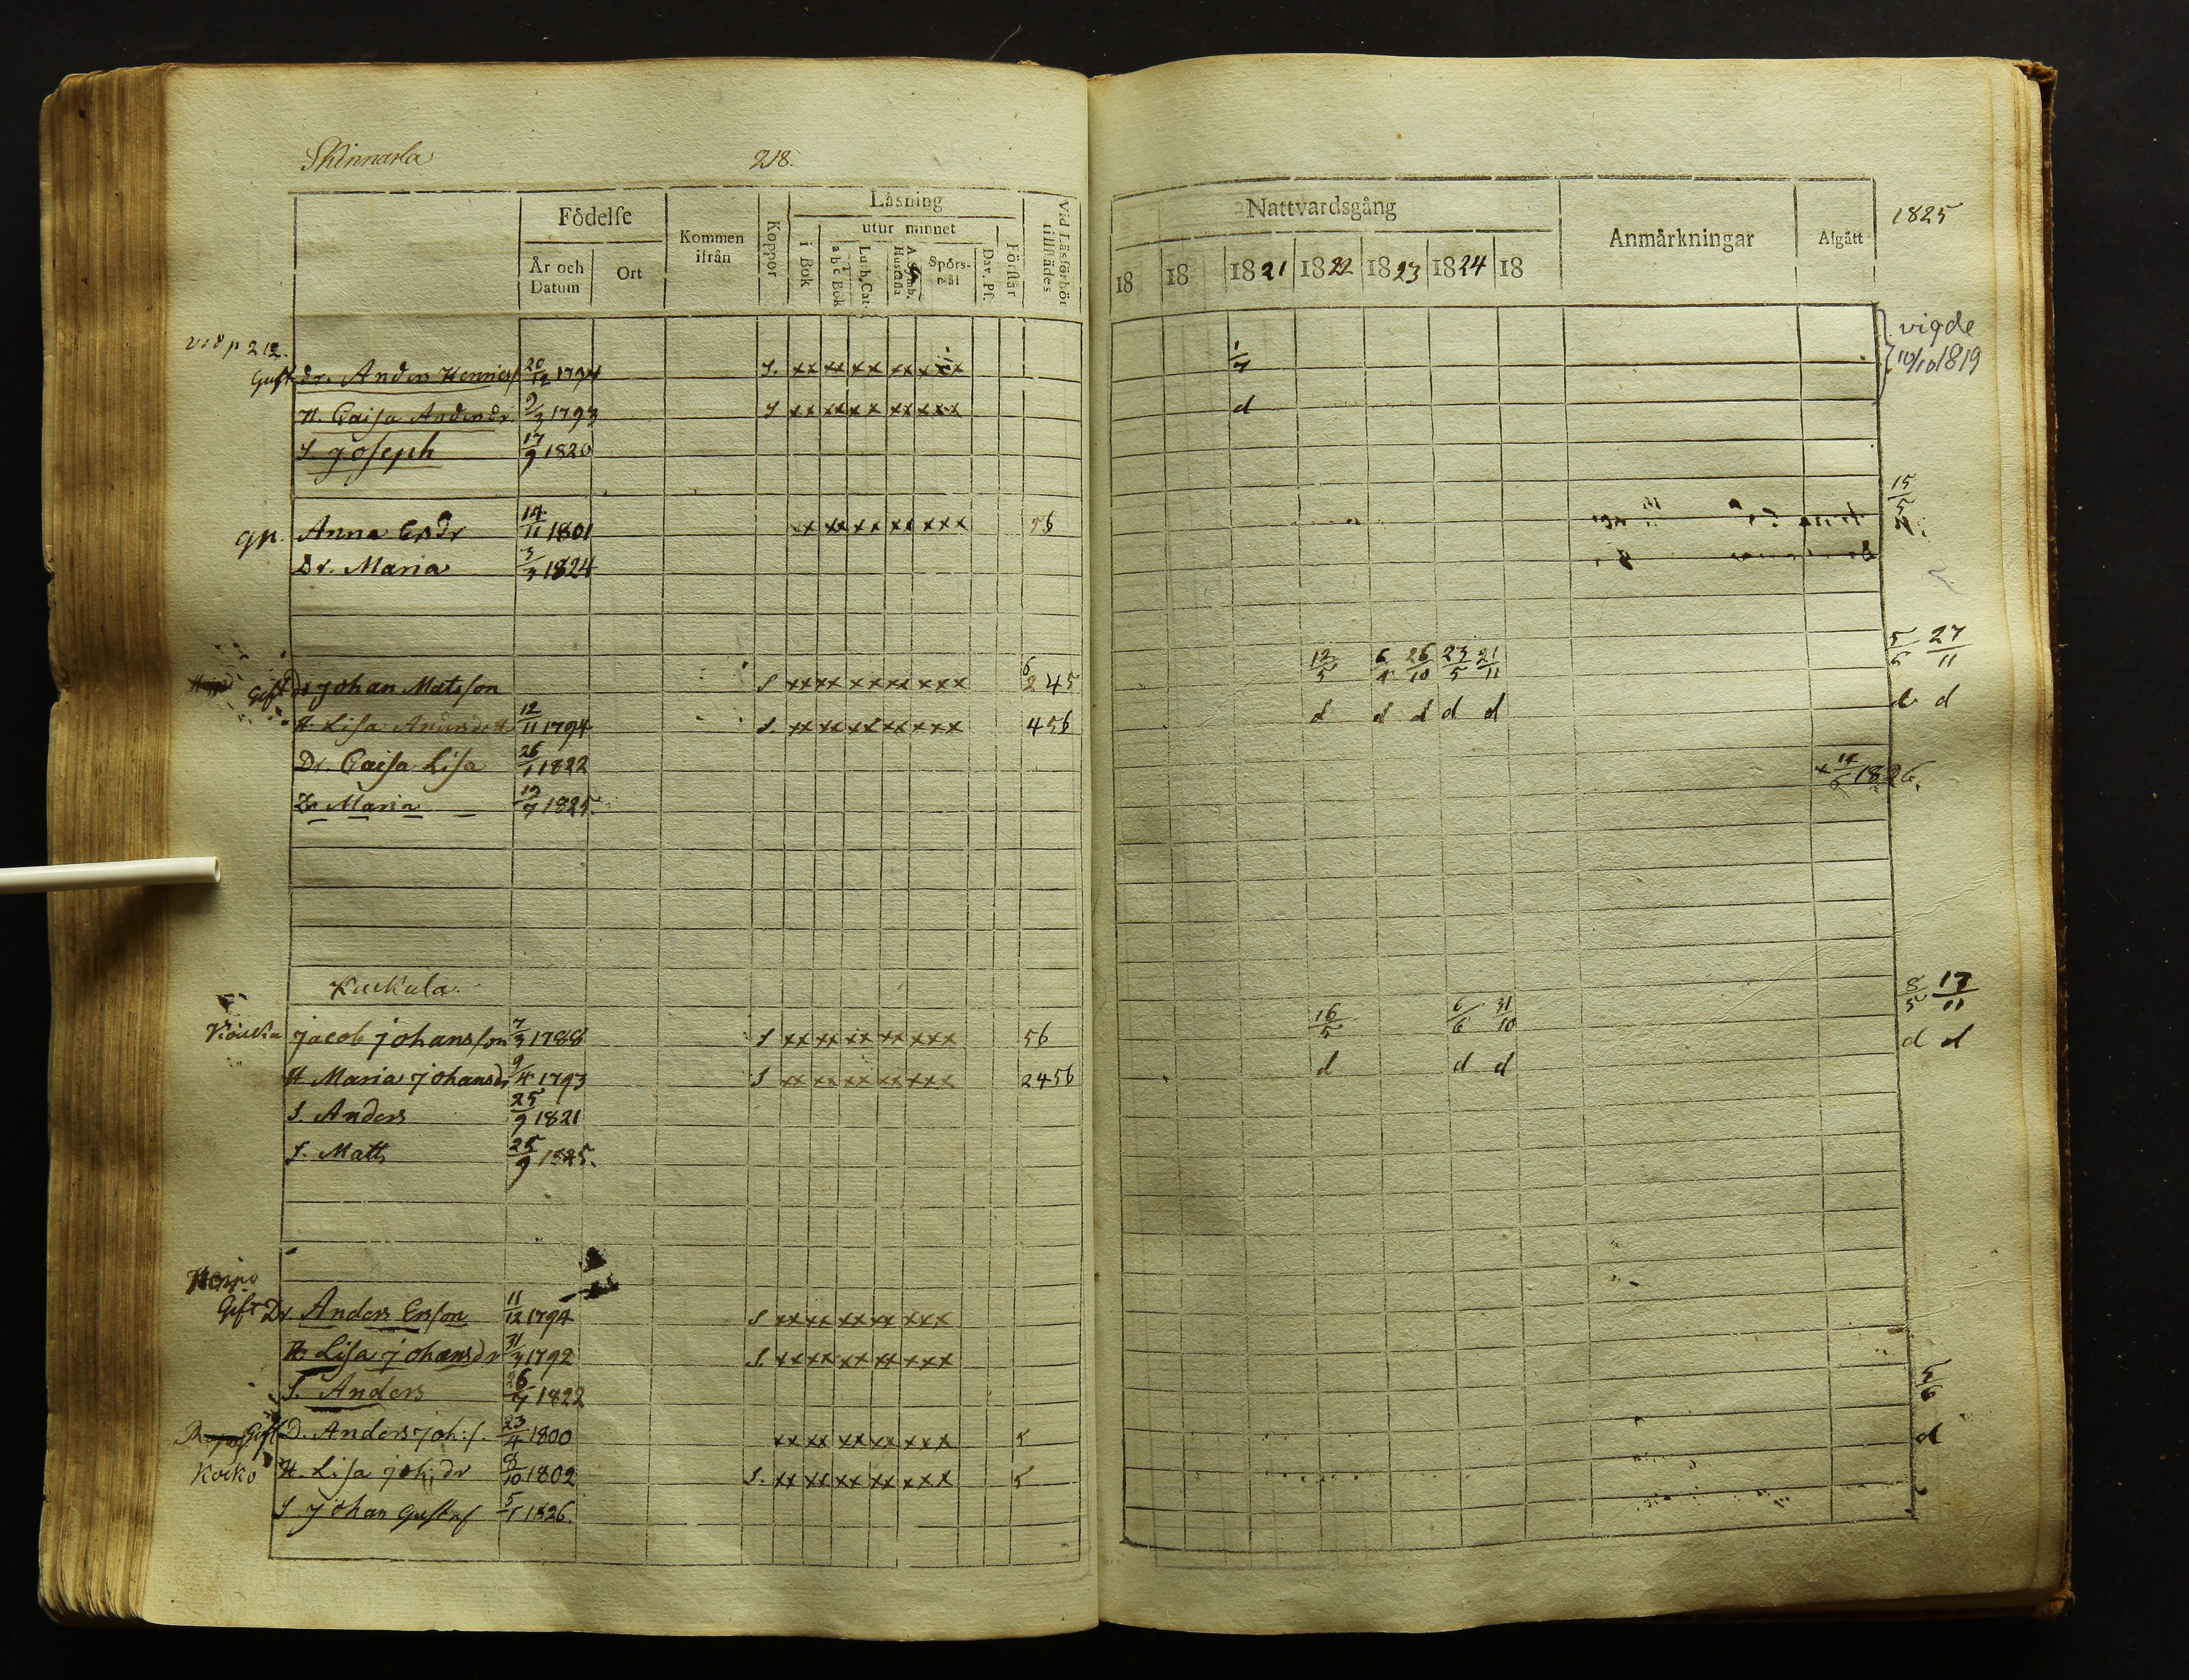 Skinnarla 218.
Födelse
År och Datum
Ort
Kommen ifrån
Koppor
Läsning
utur minnet
i Bok
abc Bok
Luth. Cat.
A. Symb. Hustafla
Spörsmål
Dav. Ps.
Förstår
Vid Läsförhör tillstädes
Nattvardsgång
18 18 1821 1822 1823 1824 18
Anmärkningar
Afgått
1825
vid p 212.
Gift dr. Anders Henricss 20/12 1794 S. xx xx xx xx x xx 1/7 vigde 10/10 1819
H. Caisa Andersdr 9/3 1793 S xx xx xx xx xxx d
S. Joseph 17/9 1820
gp. Anna Ersdr 14/11 1801 xx xx xx xx xxx 56 15/5
Dr. Maria 3/3 1824
Gift dr Johan Matsson S xx xx xx xx xxx 6 245 12/5 6/4 26/10 23/5 21/11 5/6 27/11
H. Lisa Andersdr 12/11 1794 S. xx xx xx xx xxx 456 d d d d d d d
Dr. Caisa Lisa 26/1 1822 14/6 1826.
Dr Maria 19/7 1825.
Kuckula.
Kouka Jacob Johansson 7/3 1788 S xx xx xx xx xxx 56 16/5 6/6 31/10 8/5 13/11
H Maria Johansdr 9/4 1793 S xx xx xx xx xxx 2456 d d d d d
S. Anders 25/9 1821
S. Matts 25/9 1825.
Gift Dr. Anders Ersson 11/12 1794 S xx xx xx xx xxx
H. Lisa Johansdr 31/3 1792 S. xx xx xx xx xxx
S. Anders 26/7 1822 5/6
Gift D. Anders Joh:s. 23/4 1800 xx xx xx xx xxx 5 d
Kocko H. Lisa Joh:dr 8/10 1802 S. xx xx xx xx xxx 5
S. Johan Gustaf 5/1 1826.